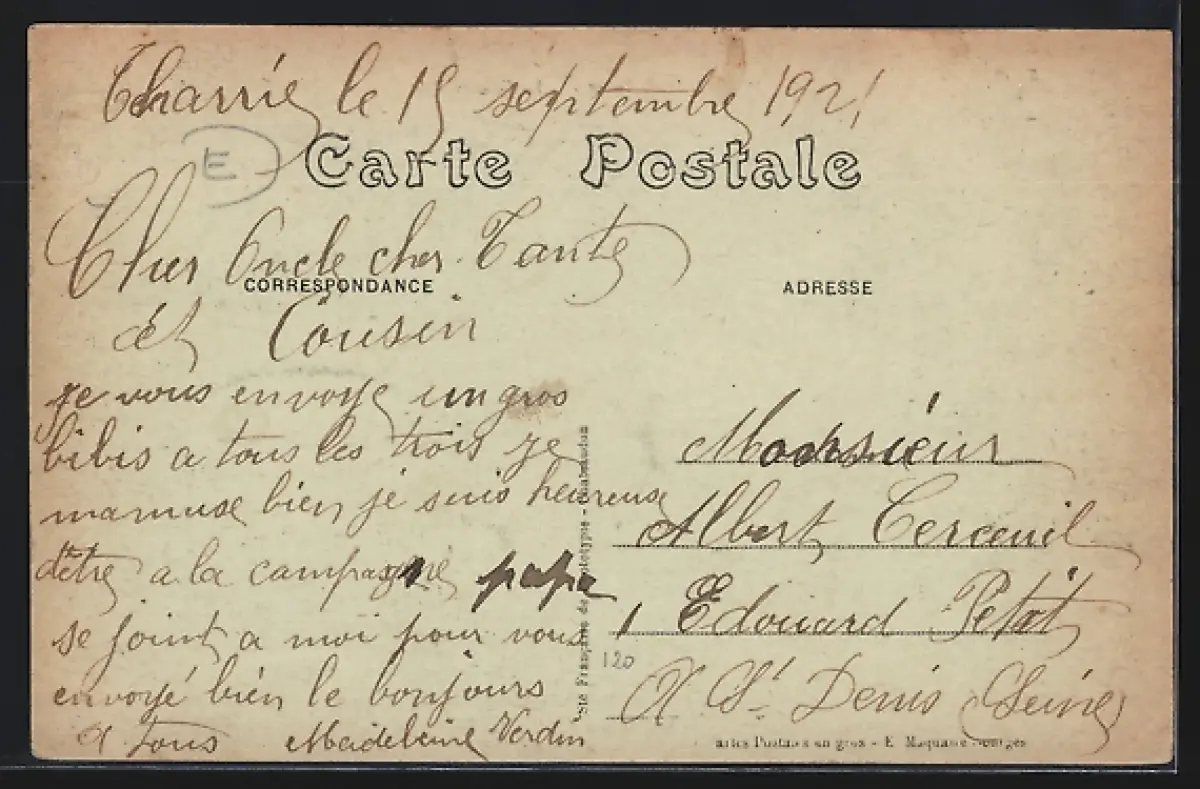 le 15 septembre 1921
E
Carte Postale
Cher Oncle cher Tante
CORRESPONDANCE
ADRESSE
et Cousin
je vous envoye un gros
bibis a tous les trois je
mamuse bien je suis heureuse
dêtre a la campagne papa
se joint a moi pour vous
envoyé bien le bonjours
a tous Madeleine Verdin
Monsieur
Albert Cerceuil
1 Edouard Petit
120
A St Denis (Seine)
Sté Française de
en gros - E.